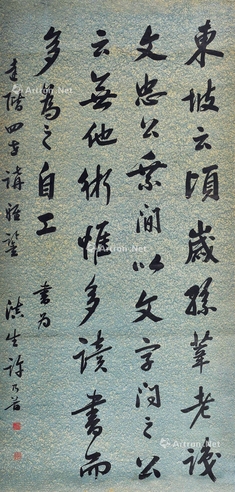 東坡云頃歲孫莘老識
文忠公乘間以文字問之公
云無他術惟多讀書而
多為之自工
書為
四古講雅鑒
濱生許乃普
Artron.Net